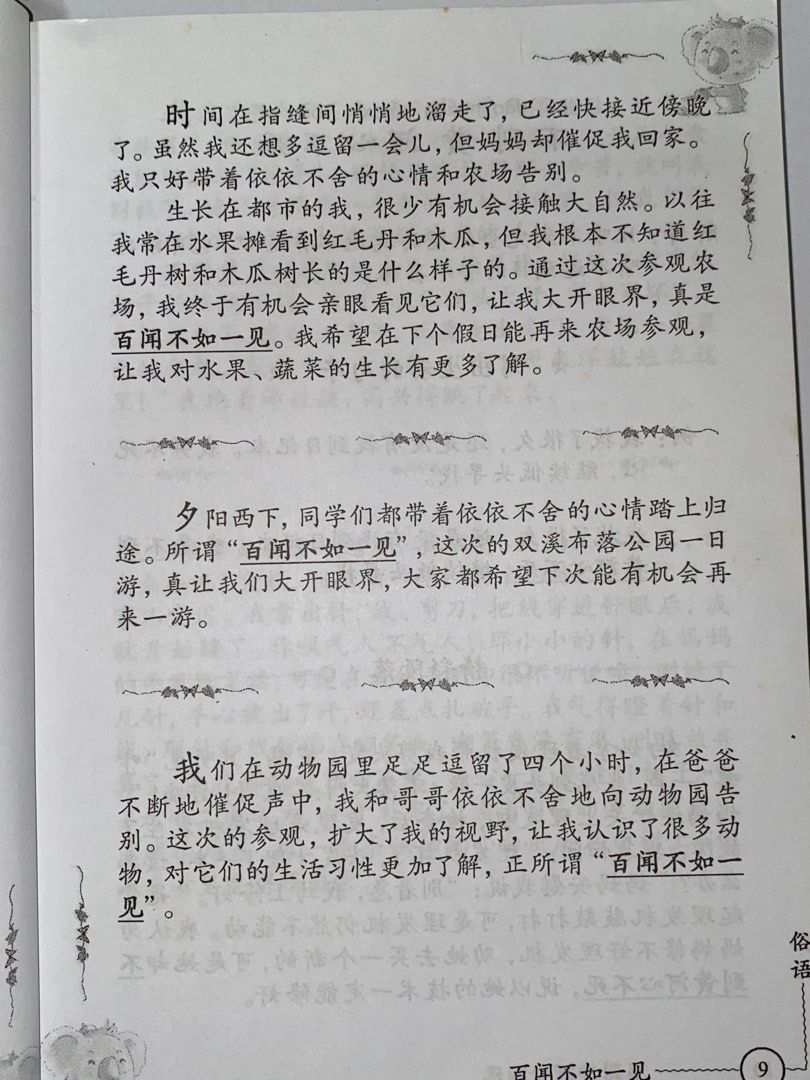 时间在指缝间悄悄地溜走了，已经快接近傍晚
了。虽然我还想多逗留一会儿，但妈妈却催促我回家。
我只好带着依依不舍的心情和农场告别。
生长在都市的我，很少有机会接触大自然。以往
我常在水果摊看到红毛丹和木瓜，但我根本不知道红
毛丹树和木瓜树长的是什么样子的。通过这次参观农
场，我终于有机会亲眼看见它们，让我大开眼界，真是
百闻不如一见。我希望在下个假日能再来农场参观，
让我对水果、蔬菜的生长有更多了解。
夕阳西下，同学们都带着依依不舍的心情踏上归
途。所谓“百闻不如一见”，这次的双溪布落公园一日
游，真让我们大开眼界，大家都希望下次能有机会再
来一游。
我们在动物园里足足逗留了四个小时，在爸爸
不断地催促声中，我和哥哥依依不舍地向动物园告
别。这次的参观，扩大了我的视野，让我认识了很多动
物，对它们的生活习性更加了解，正所谓“百闻不如一
见”。
俗语
百闻不如一见
9